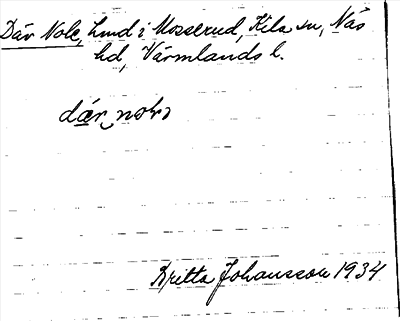 Där Nole, hmd i Mosserud, Kila sn, Näs
hd, Värmlands l.
dær
Britta Johansson 1934